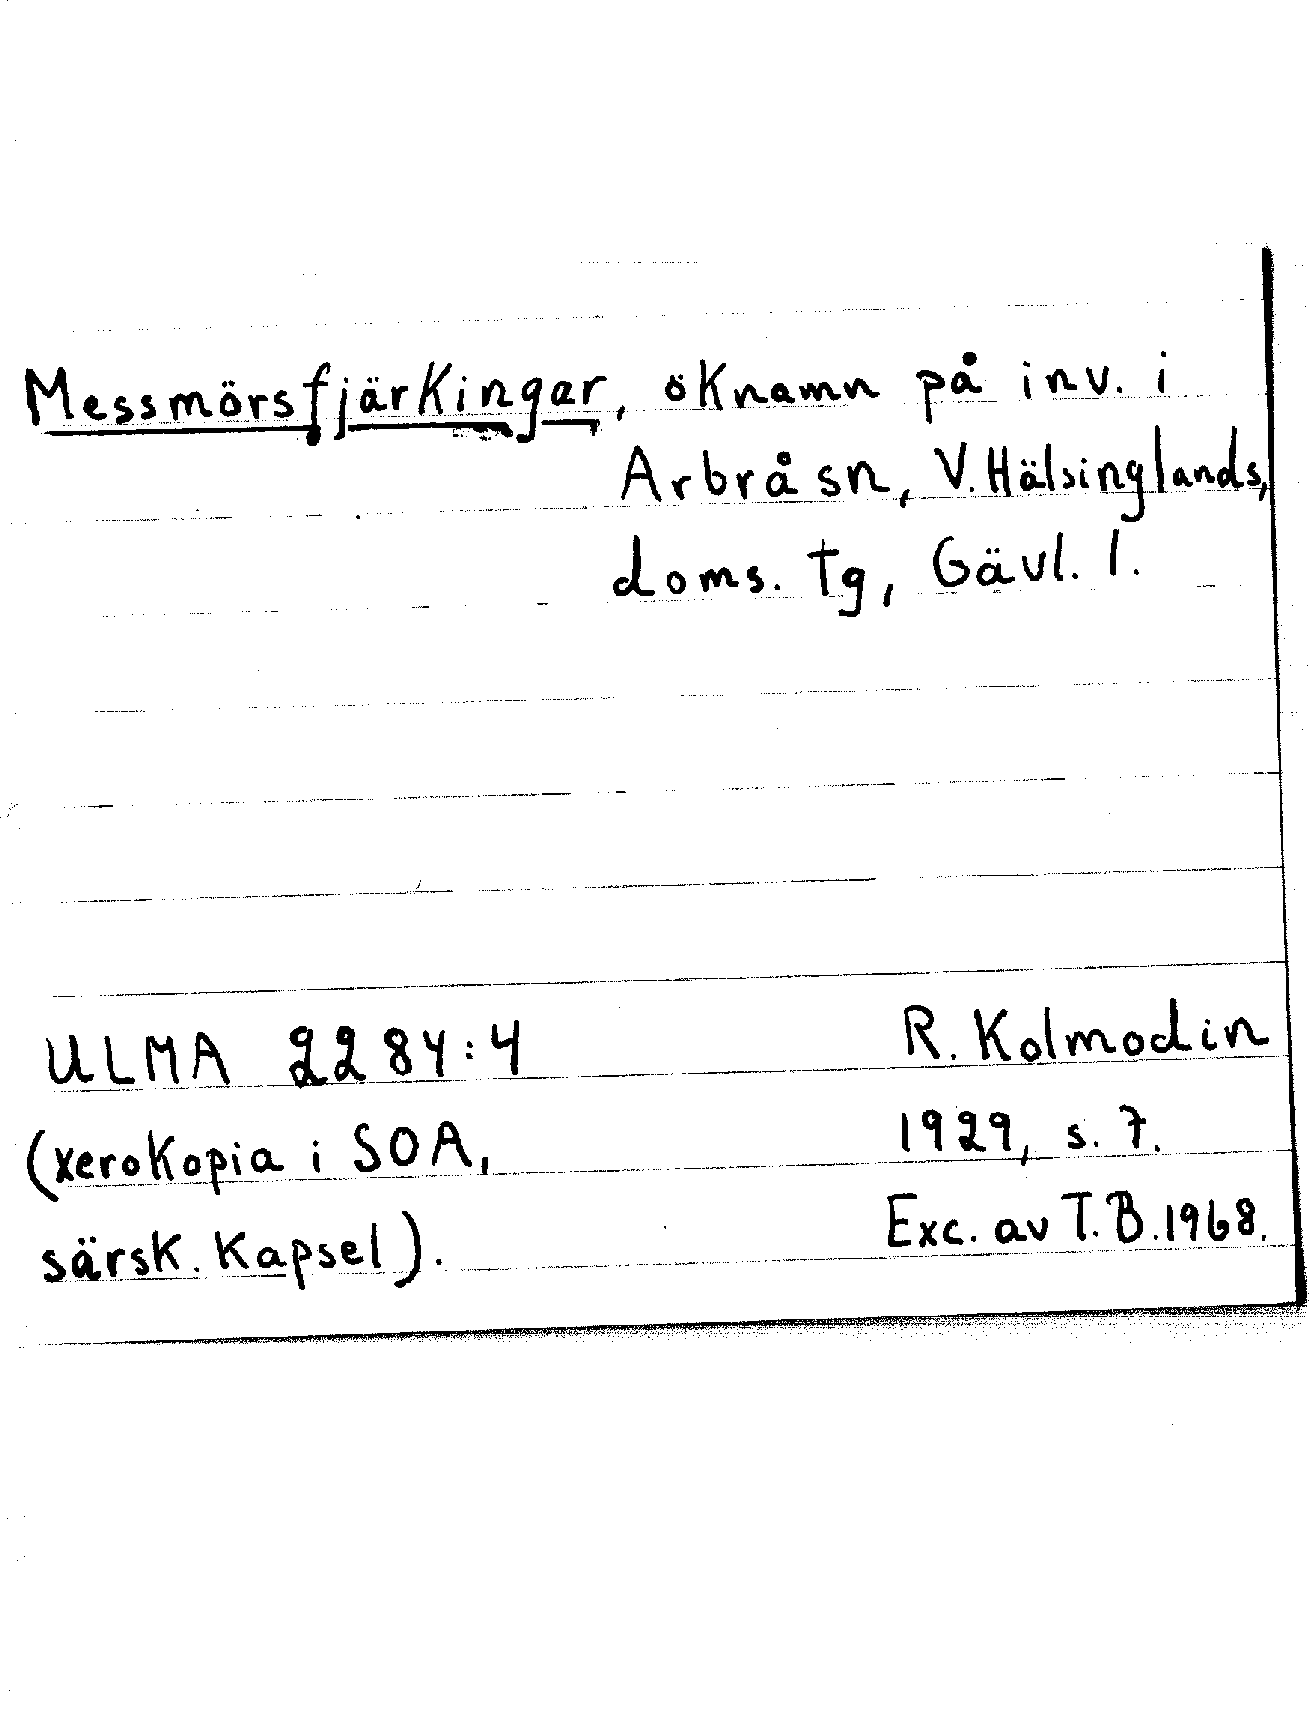 Messmörsfjärkingar, öknamn på inv. i
Arbrå sn, V. Hälsinglands,
doms. tg, Gävl. l.
ULMA 2284:4
(xerokopia i SOA,
särsk. kapsel).
R. Kolmodin
1929, s. 7.
Exc. av T.B. 1968.